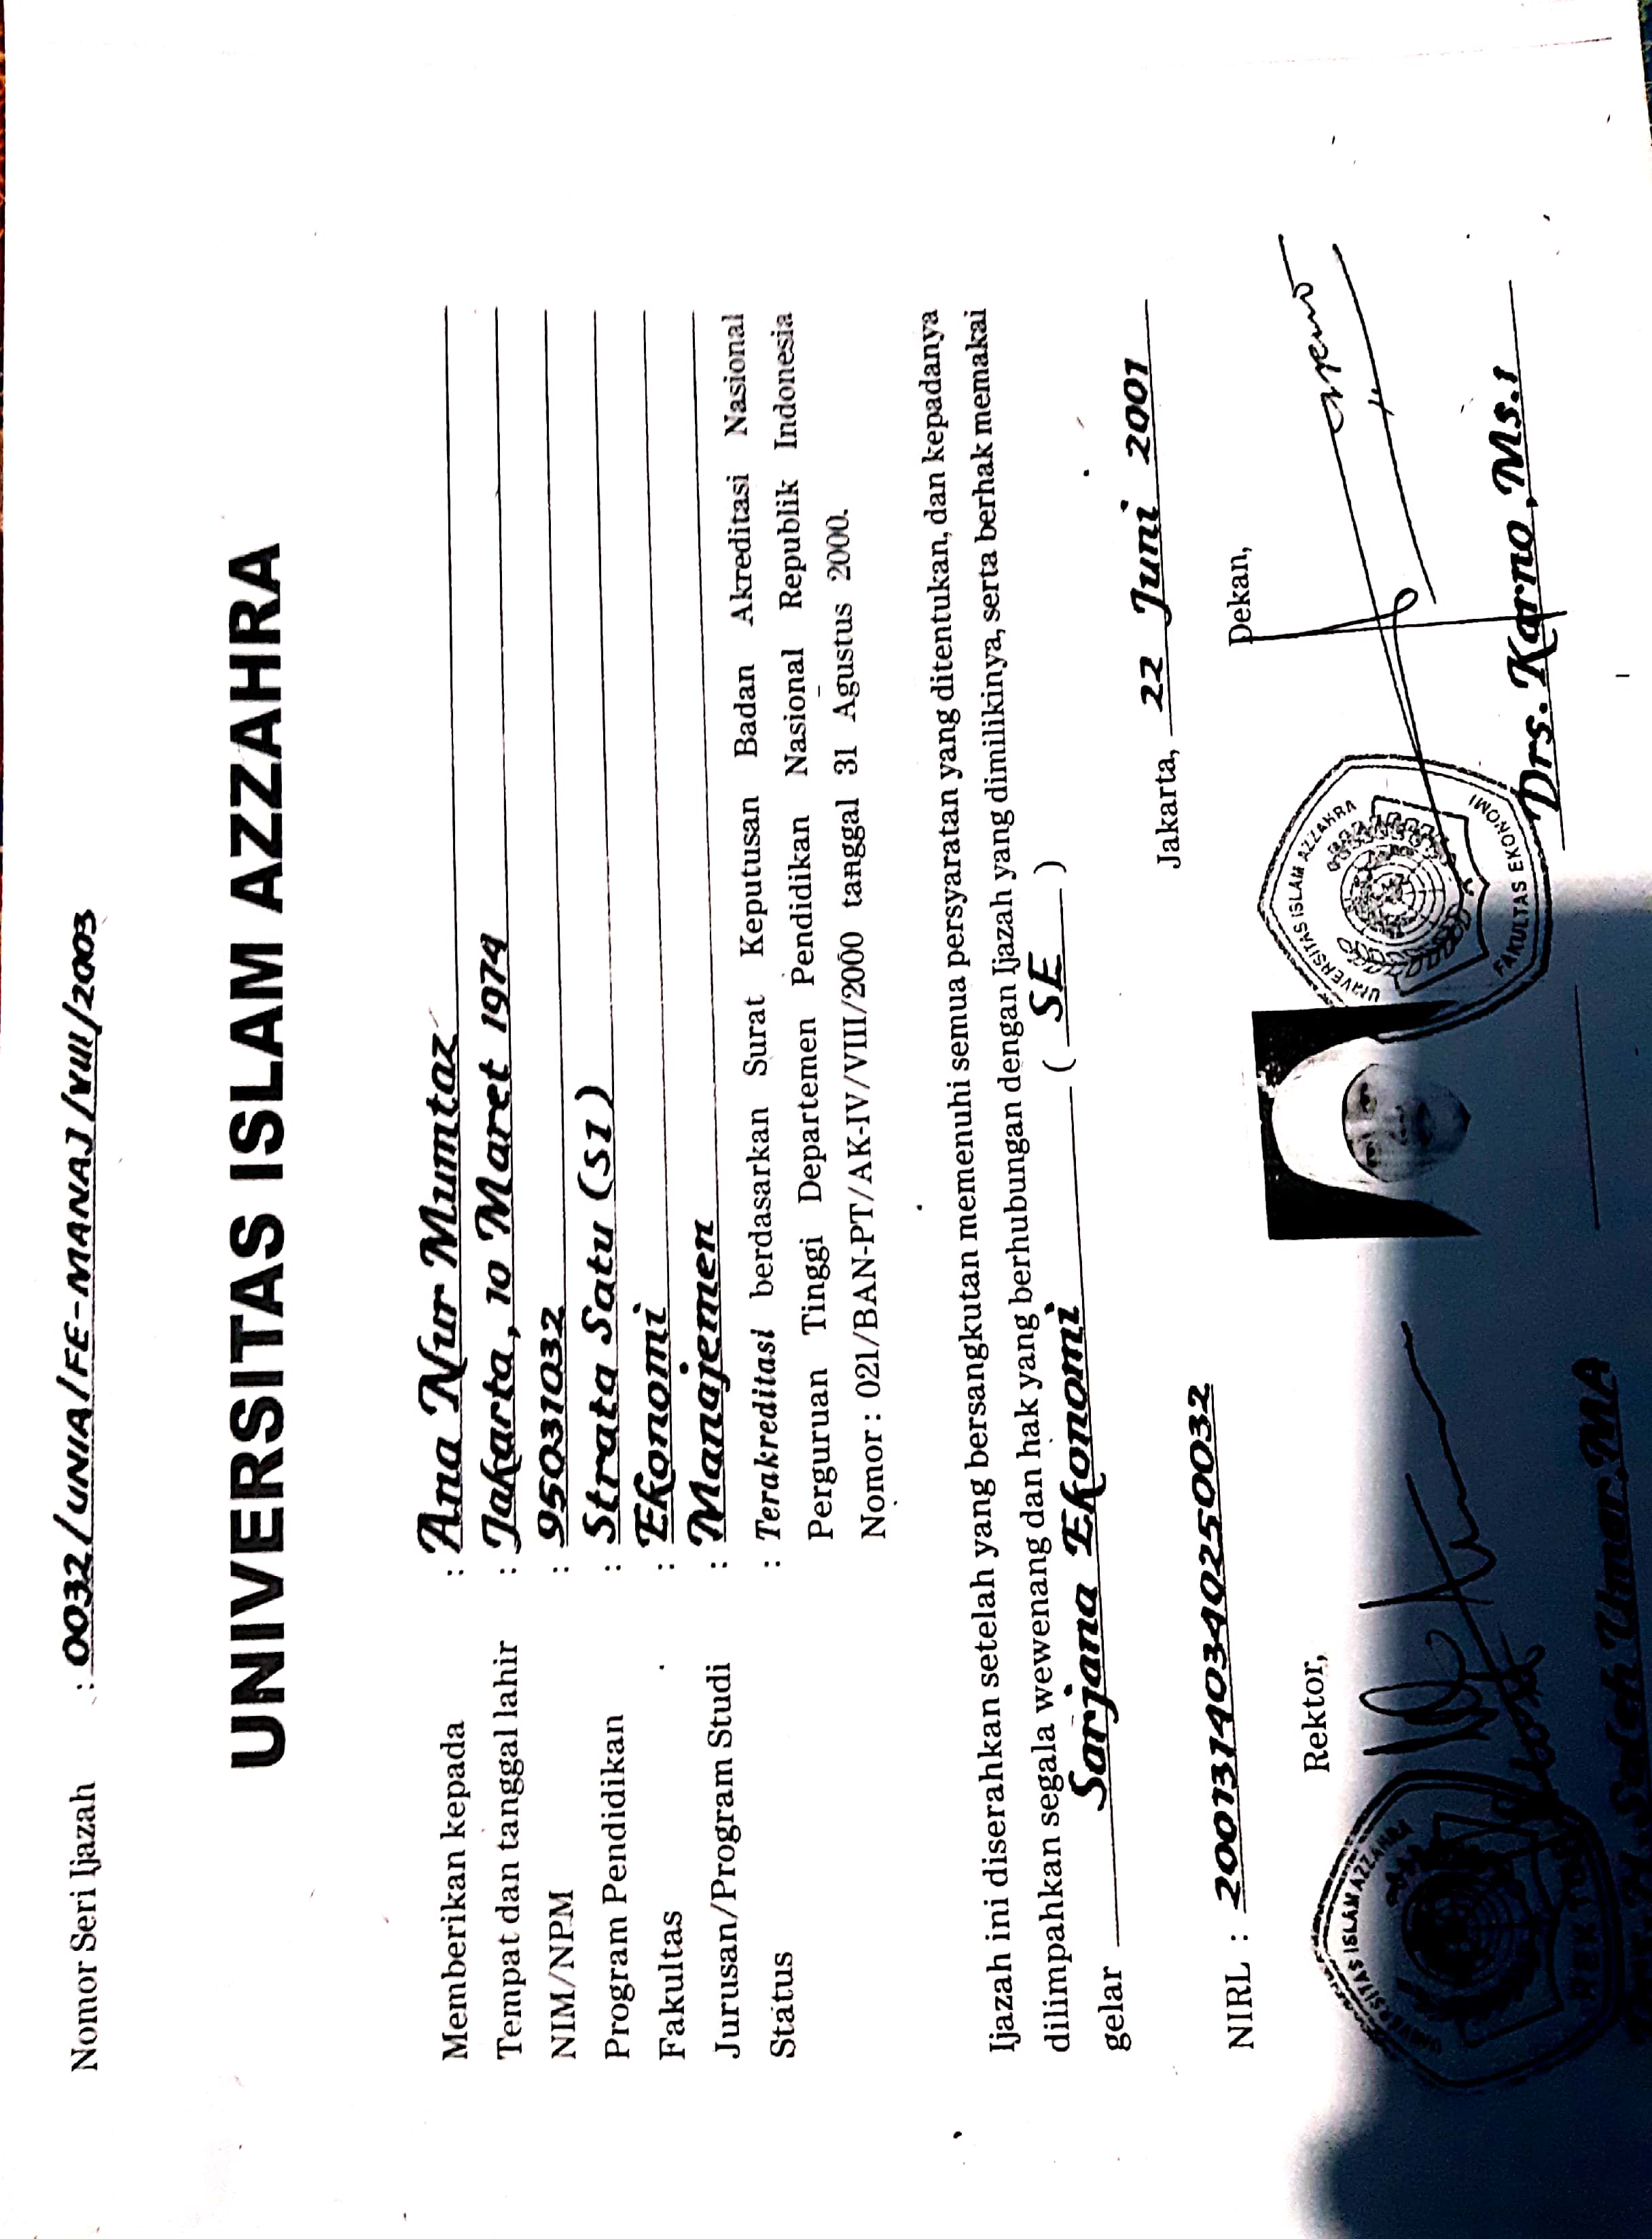 Nomor Seri Ijazah : 0032/UNIA/FE-MANAJ/VIII/2003
UNIVERSITAS ISLAM AZZAHRA
Memberikan kepada : Ana Nur Mumtaz
Tempat dan tanggal lahir : Jakarta, 10 Maret 1974
NIM/NPM : 95031032
Program Pendidikan : Strata Satu (S1)
Fakultas : Ekonomi
Jurusan/Program Studi : Manajemen
Status : Terakreditasi berdasarkan Surat Keputusan Badan Akreditasi Nasional
Perguruan Tinggi Departemen Pendidikan Nasional Republik Indonesia
Nomor : 021/BAN-PT/AK-IV/VIII/2000 tanggal 31 Agustus 2000.
Ijazah ini diserahkan setelah yang bersangkutan memenuhi semua persyaratan yang ditentukan, dan kepadanya
dilimpahkan segala wewenang dan hak yang berhubungan dengan Ijazah yang dimilikinya, serta berhak memakai
gelar Sarjana Ekonomi ( SE )
Jakarta, 22 Juni 2001
NIRL : 20013140340250032
Rektor,
Dekan,
UNIVERSITAS ISLAM AZZAHRA
REKTOR
UNIVERSITAS ISLAM AZZAHRA
FAKULTAS EKONOMI
Saleh Umar, MA
Drs. Karno, Ms.i